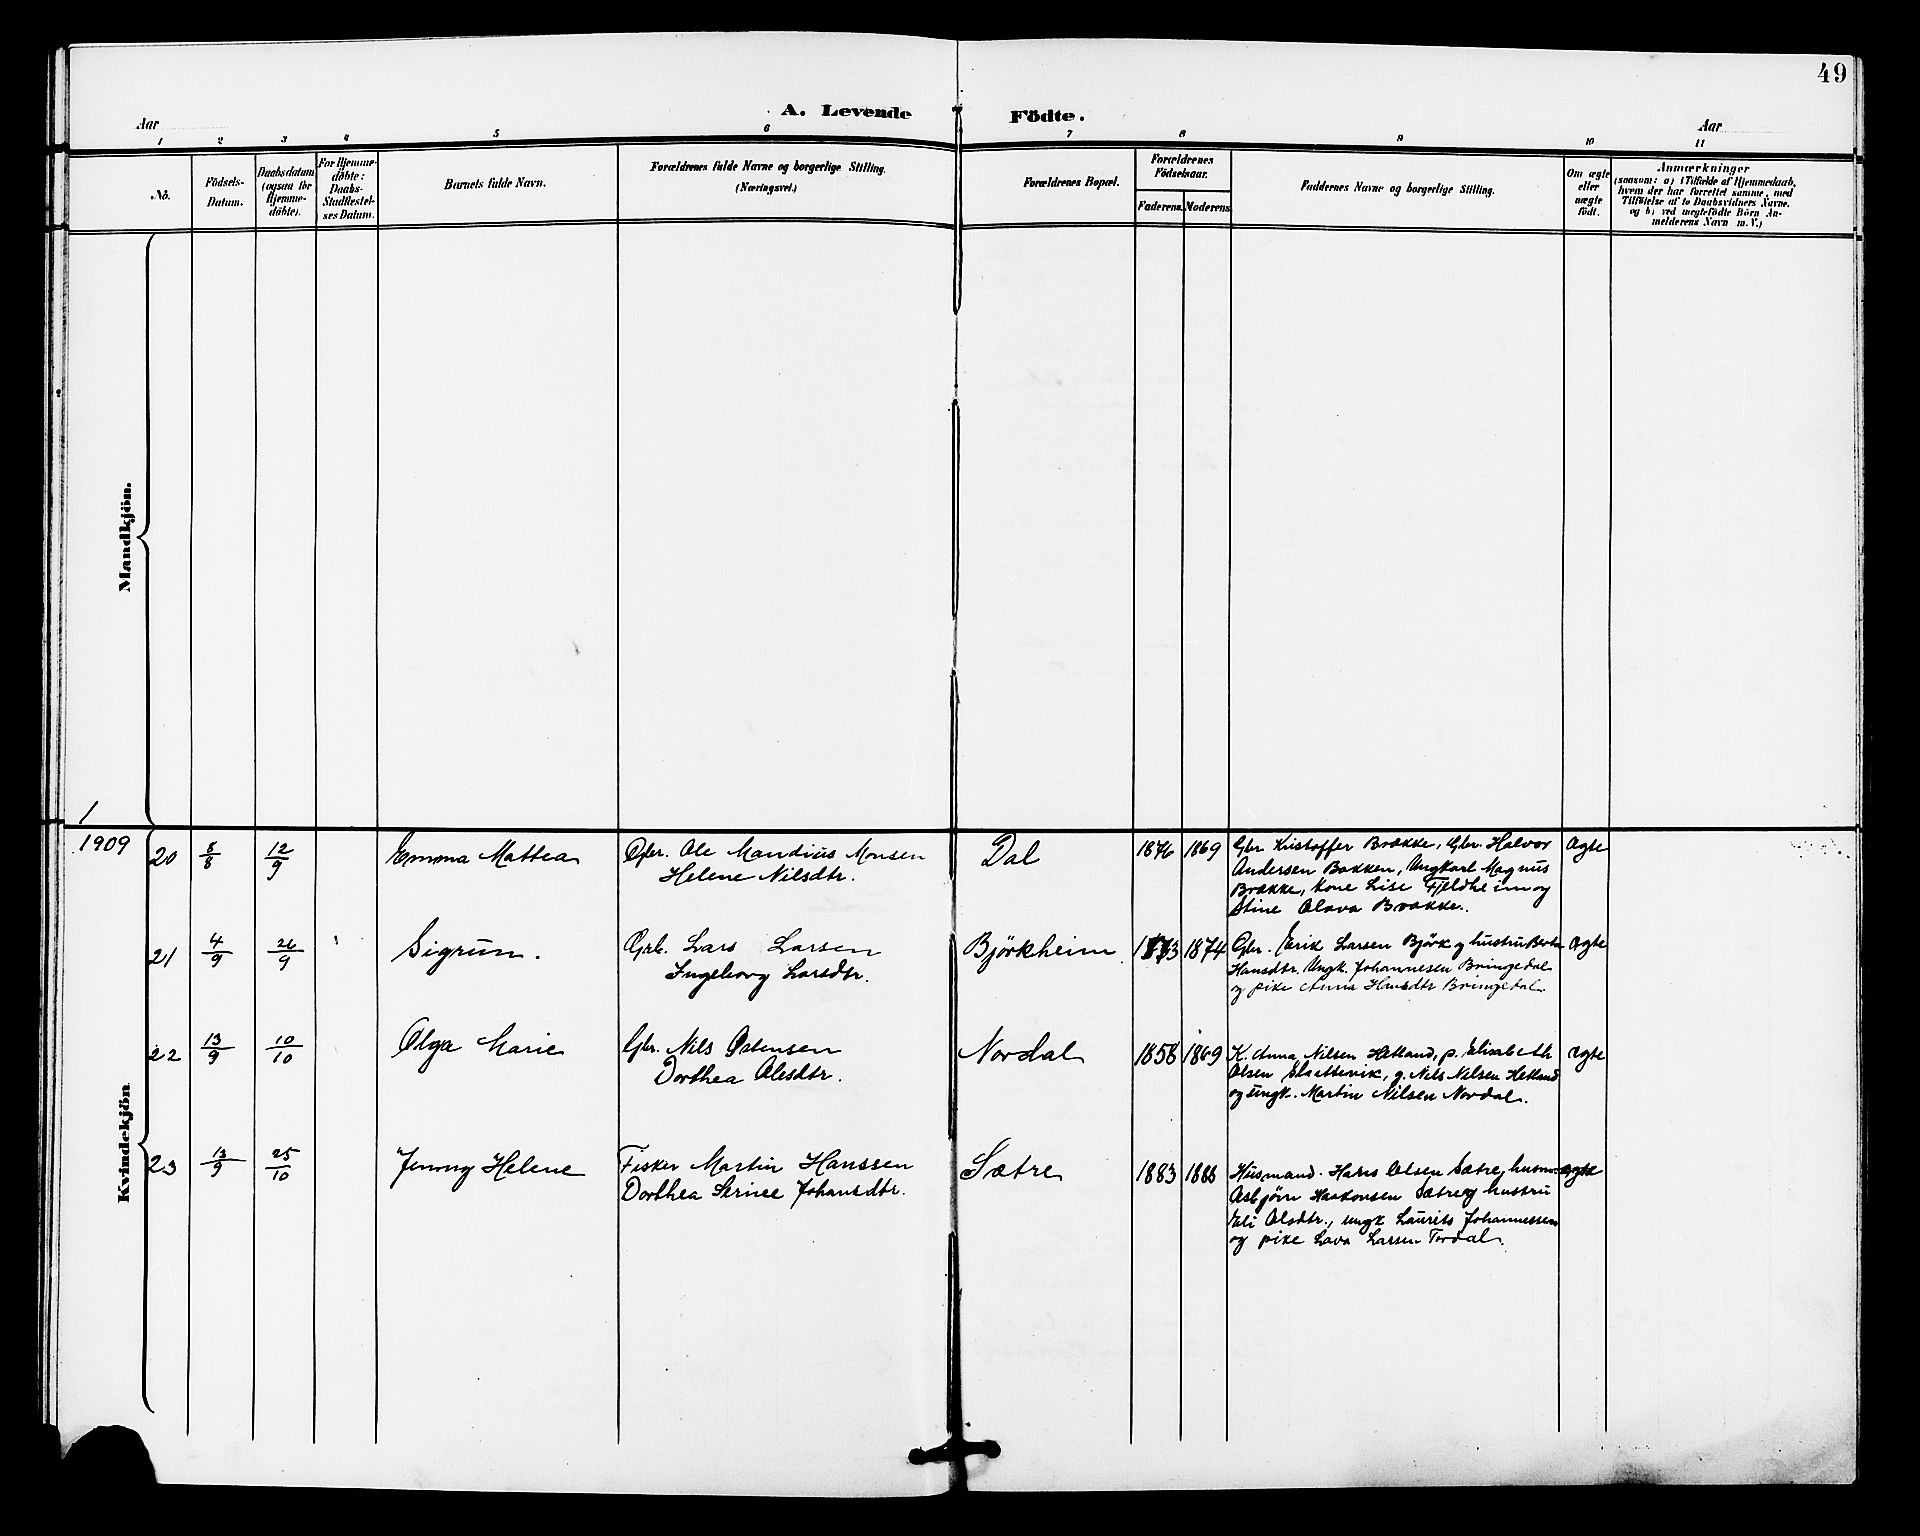 49
A. Levende Födte.
Aar
Aar
1 2 3 4 5 6 7 8 9 10 11
No.
Födsels-
Datum.
Daabsdatum
(ogsaa for
Hjemme-
døbte).
For Hjemme-
døbte:
Daabs-
Stadfæstel-
ses Datum.
Barnets fulde Navn.
Forældrenes fulde Navne og borgerlige Stilling.
(Næringsvei.)
Forældrenes Bopæl.
Forældrenes
Fødselsaar.
Faderens. Moderens.
Faddernes Navne og borgerlige Stilling.
Om ægte
eller
uægte
født.
Anmærkninger
(saasom: a) i Tilfælde af Hjemmedaab,
hvem der har forrettet samme, med
Tilføielse af to Daabsvidners Navne,
og b) ved uægtefødte Börn An-
melderens Navn m. V.)
Mandkjön.
1909
Kvindekjön
20 8/8 12/9 Emma Mattea Gbr. Ole Mandius Monsen Dal 1876 1869 Gbr Kristoffer Brække, Gbr. Halvor Ægte
Helene Nilsdtr. Andersen Bakken, Ungkarl Magnus
Brække, Kone Lise Fjeldheim og
Stine Olava Brække.
21 4/9 26/9 Sigrun. Grb. Lars Larsen Björkheim 1873 1874 Gbr. Erik Larsen Björk og hustru Berta Ægte
Ingeborg Larsdtr. Hansdtr. Ungk. Johannesen Bringedal
og pike Anna Hansdtr Bringedal
22 13/9 10/10 Olga Marie Gbr. Nils Østensen Nordal 1858 1869 K. Anna Nilsen Hetland, p. Elisabeth ægte
Dorthea Olesdtr. Olsen Slættevik, g. Nils Nilsen Hetland
og ungk. Martin Nilsen Nordal.
23 13/9 25/10 Jenny Helene Fisker Martin Hanssen Sætre 1883 1888 Husmand. Hans Olsen Sætre, husm. ægte
Dorthea Serine Johansdtr. Asbjörn Haakonsen Sætre og hustru
Eli Olsdtr., ungk Laurits Johannessen
og pike Lava Larsen Tordal.